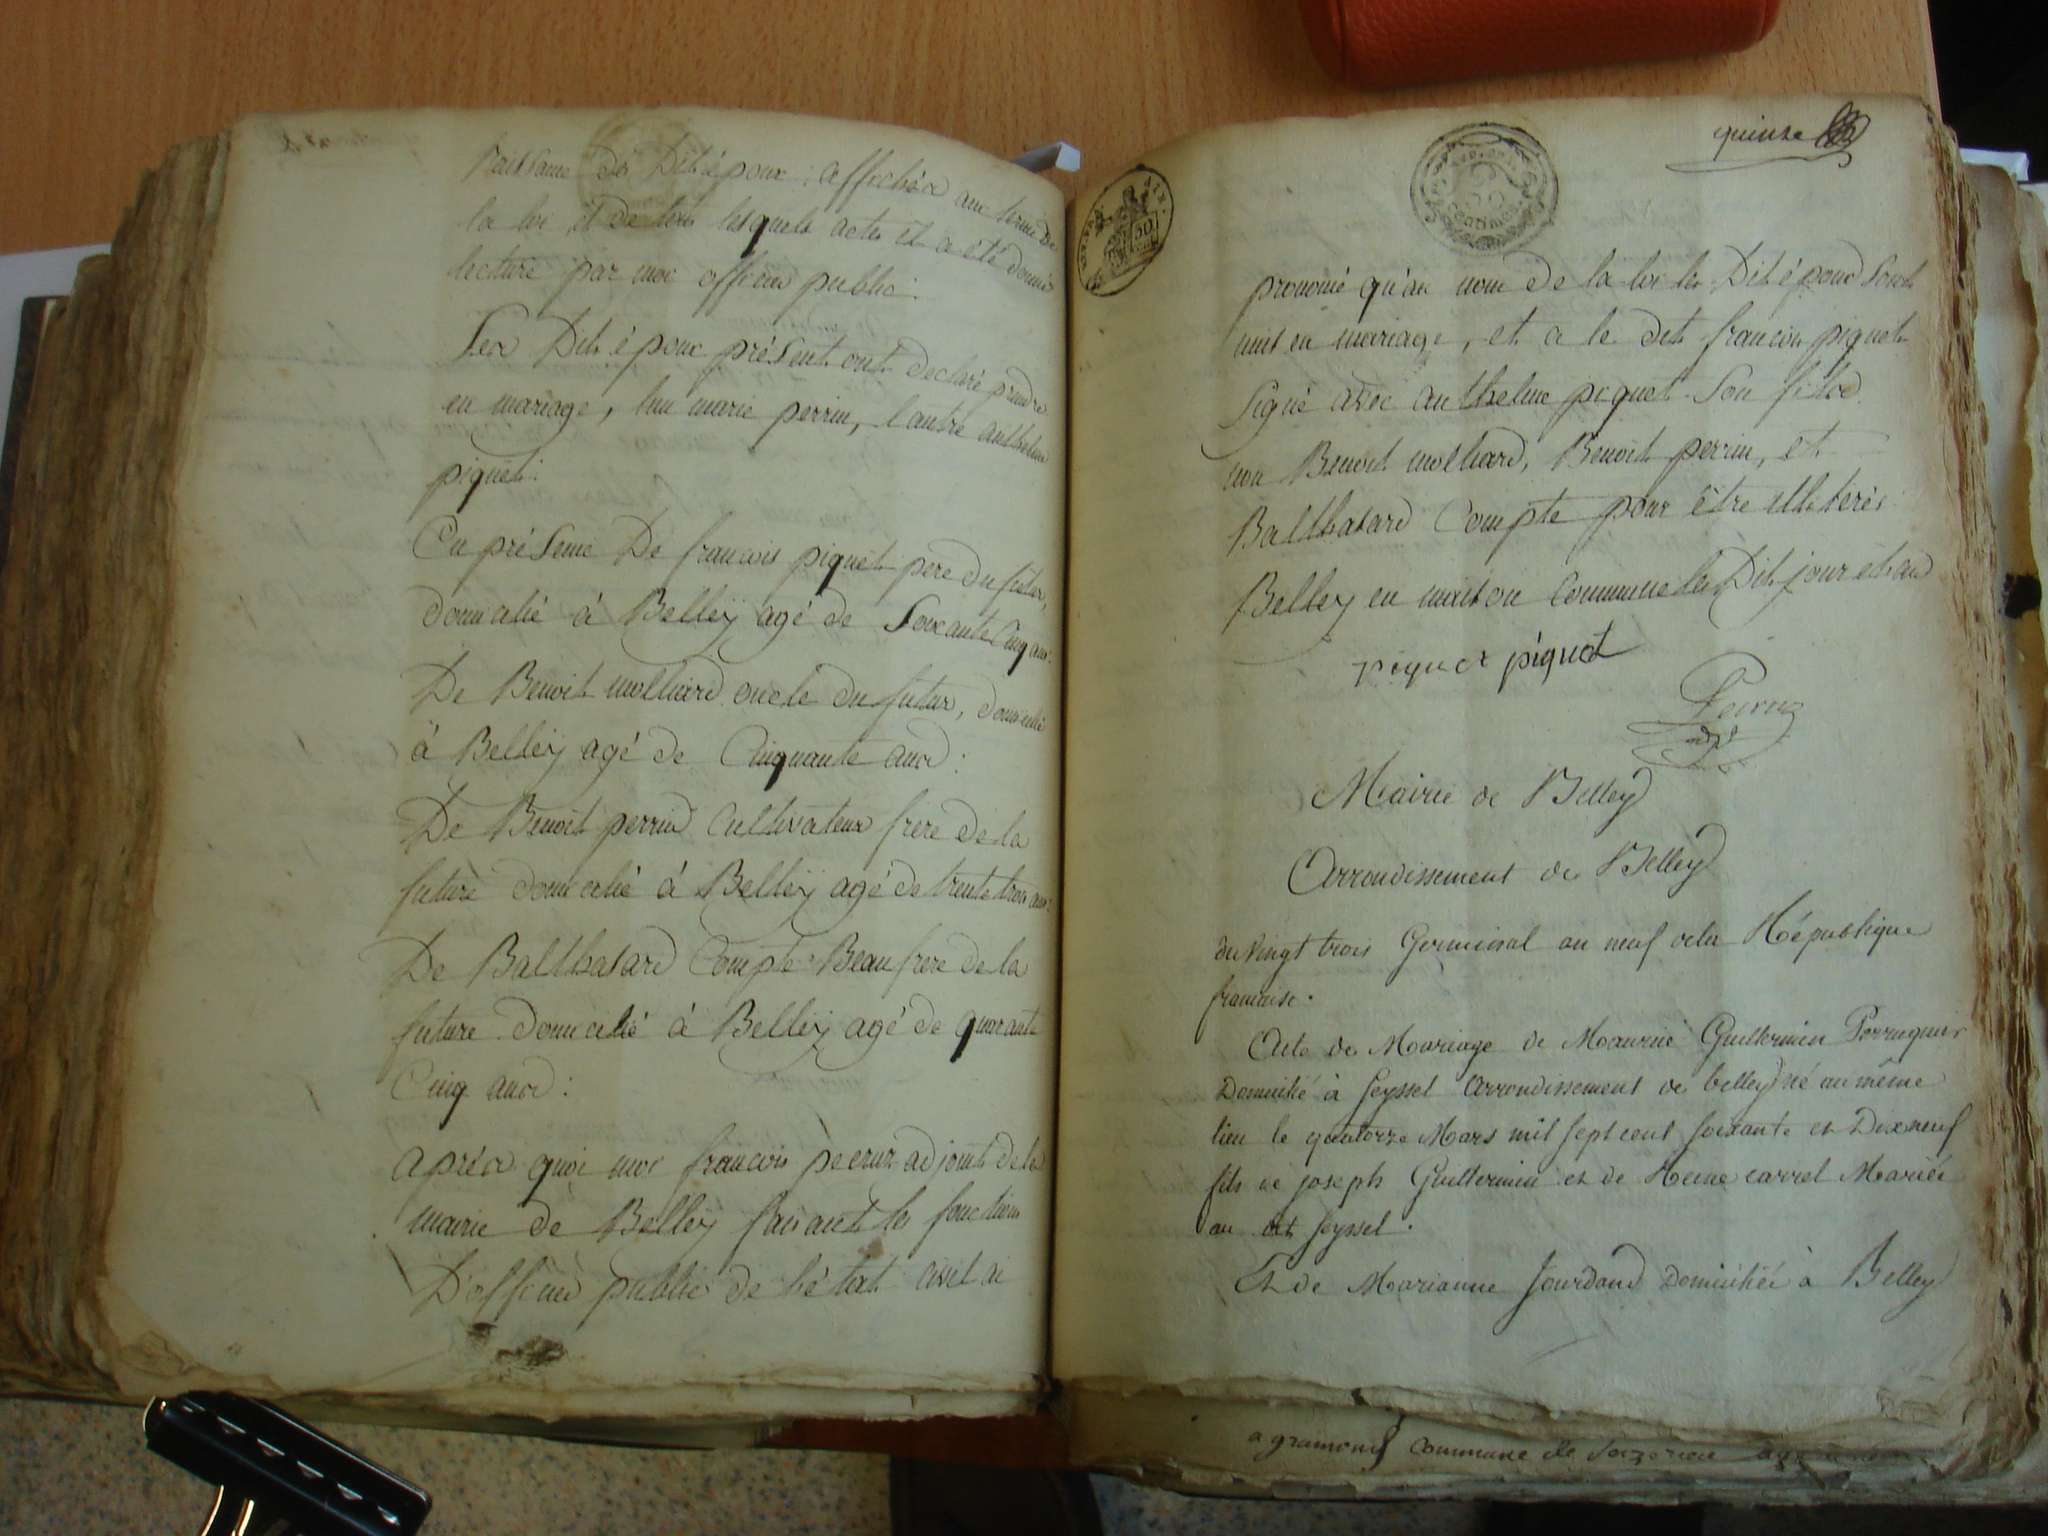 naissance des Dits époux : affichés aux terme de
la loi et de tous lesquels actes il a été donné
lecture par moi officier public.
Les Dits époux présent ont déclaré prendre
en mariage, l'un marie perrin, l'autre anthelme
piquet.
En présence De francois piquet pere du futur,
domicilié à Belleÿ agé de Soixante Cinq ans.
De Benoit molliard oncle du futur, domicilié
à Belleÿ agé de Cinquante ans :
De Benoit perrin Cultivateur frere de la
future domicilié à Belleÿ agé de trente trois ans :
De Balthasard Compte Beau frere de la
future domicilié à Belleÿ agé de quarante
Cinq ans :
après quoi moi francois peeruz adjoint de la
mairie de Belleÿ faisant les fonctions
D'officier public de l'état civil ai
quinze
50
prononcé qu'au nom de la loi les Dits époux Sont
unis en mariage, et a le dit francois piquet
Signé avec anthelme piquet Son fils
non Benoit molliard, Benoit perrin, et
Balthasard Compte pour être illiterés.
Belley en maison Commune les Dits jour et an
piquet piquet
Peeruz
adjt
Mairie de Belley
Arrondissement de Belley
du Vingt trois Germinal an neuf de la République
francaise.
Acte de Mariage de Maurice Guillermin Perruquier
Domicilié à Seyssel Arrondissement de belley né au même
lieu le quatorze Mars mil sept cent soixante et Dix neuf
fils de joseph Guillermin et de Reine carrel Mariés
au dit Seyssel.
Et de Marianne Jourdand Domiciliée à Belley
a gramond commune de